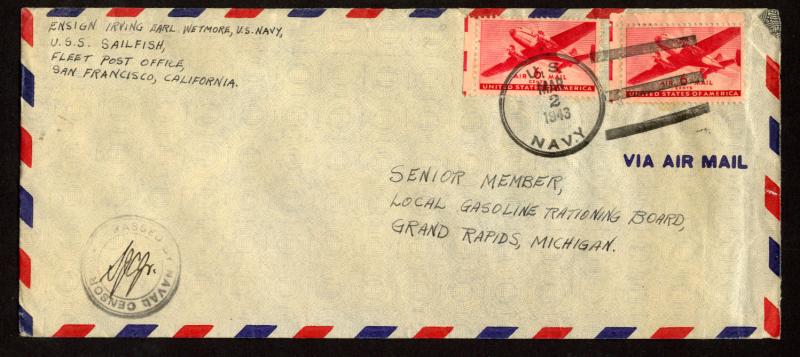 ENSIGN IRVING EARL WETMORE, U.S. NAVY,
U.S.S. SAILFISH,
FLEET POST OFFICE,
SAN FRANCISCO, CALIFORNIA.
AIR MAIL
CENTS
UNITED STATES OF AMERICA
AIR 6 MAIL
CENTS
UNITED STATES OF AMERICA
U.S.
MAR
2
1943
NAVY
VIA AIR MAIL
SENIOR MEMBER,
LOCAL GASOLINE RATIONING BOARD,
GRAND RAPIDS, MICHIGAN.
PASSED BY NAVAL CENSOR